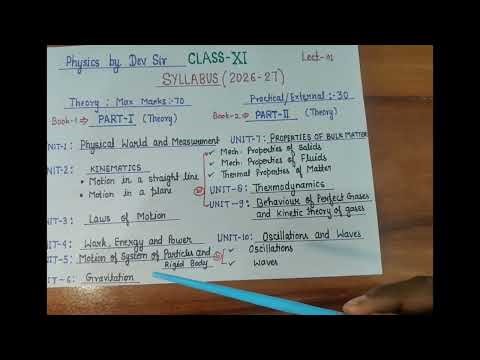 Physics by Dev Sir CLASS-XI Lect-01
SYLLABUS (2026-27)
Theory : Max Marks:-70
Practical/External :-30
Book-1 ⇒ PART-I (Theory)
Book-2 ⇒ PART-II (Theory)
UNIT-1: Physical World and Measurement
UNIT-2: KINEMATICS
• Motion in a straight line
• Motion in a plane
UNIT-3: Laws of Motion
UNIT-4: Work, Energy and Power
UNIT-5: Motion of System of Particles and
Rigid Body
UNIT-6: Gravitation
UNIT-7: PROPERTIES OF BULK MATTER
✓ Mech. Properties of Solids
✓ Mech. Properties of Fluids
✓ Thermal Properties of Matter
UNIT-8: Thermodynamics
UNIT-9: Behaviour of Perfect Gases
and Kinetic Theory of gases
UNIT-10: Oscillations and Waves
✓ Oscillations
✓ Waves